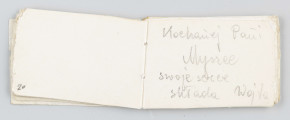 Kochanej Pani
Myszce
swoje serce
składa Wojtu
20